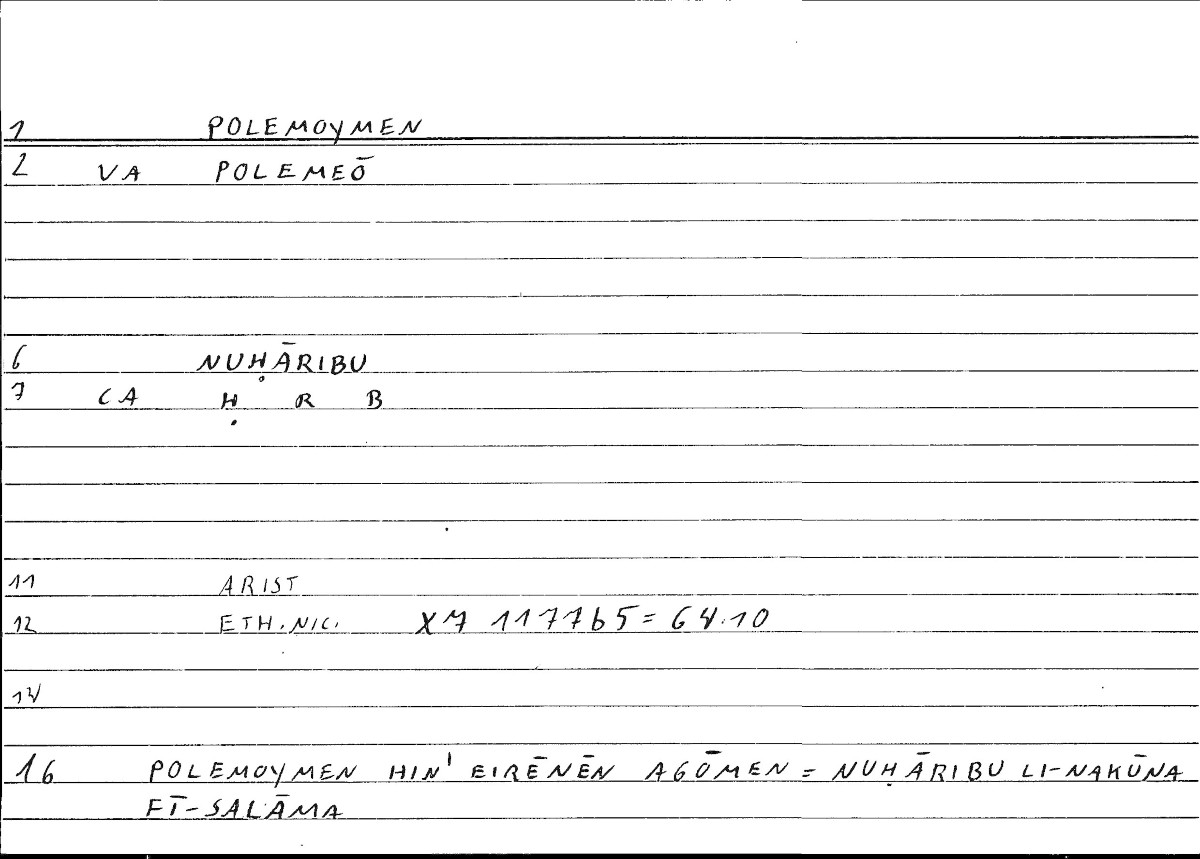 1 POLEMOYMEN
2 VA POLEMEŌ
6 NUḤĀRIBU
7 CA Ḥ R B
11 ARIST
12 ETH.NIC. X7 1177b5=64.10
14
16 POLEMOYMEN HIN' EIRĒNĒN AGŌMEN = NUḤĀRIBU LI-NAKŪNA
FĪ-SALĀMA